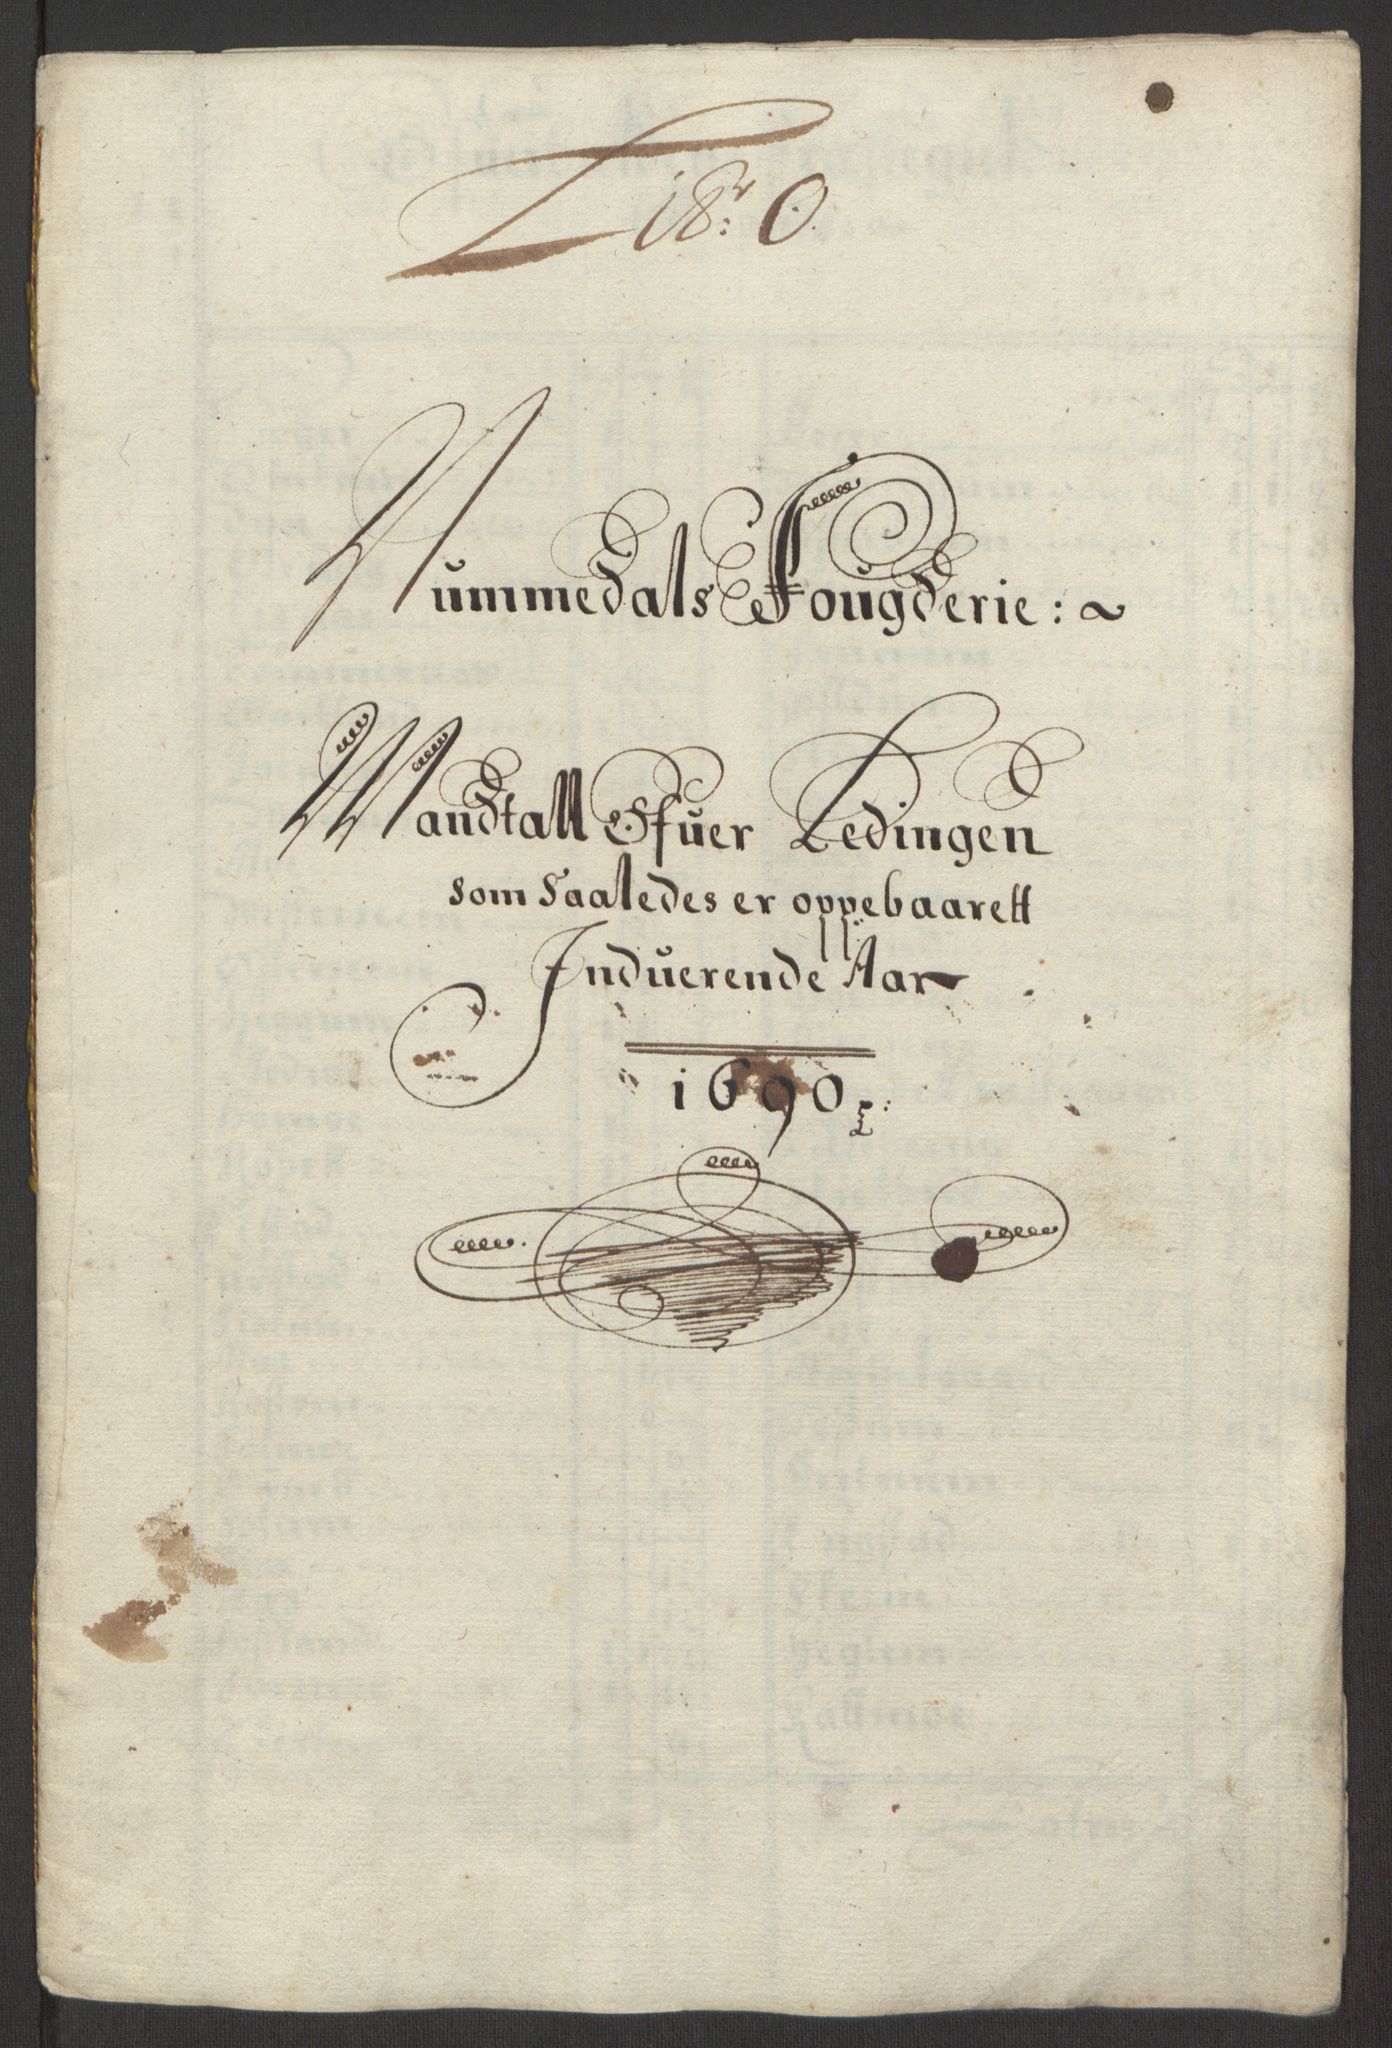 Lit: O.
Nummedals Fougderie:
Mandtall Ofuer Ledingen
som saaledes er oppebaarett
Induerende Aar
1690